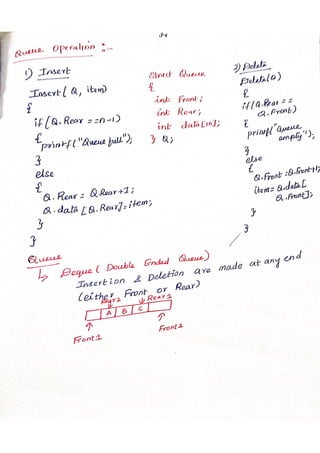 34
Queue Operation :-
1) Insert
Insert( Q, item)
{
if (Q.Rear == n-1)
{
printf ("Queue full");
}
else
{
Q. Rear = Q.Rear+1;
Q. data [Q. Rear]= item;
}
}
Struct Queue
{
int Front;
int Rear;
int data[n];
} Q;
2) Delete
Delete(Q)
{
if (Q.Rear ==
Q. Front)
{
printf("Queue
empty");
}
else
{
Q.Front = Q.Front+1;
item= Q.data[
Q.Front];
}
}
Queue
Deque ( Double Ended Queue)
Insertion & Deletion are made at any end
(either Front or Rear)
Rear2 Rear1
A B C
Front1 Front2